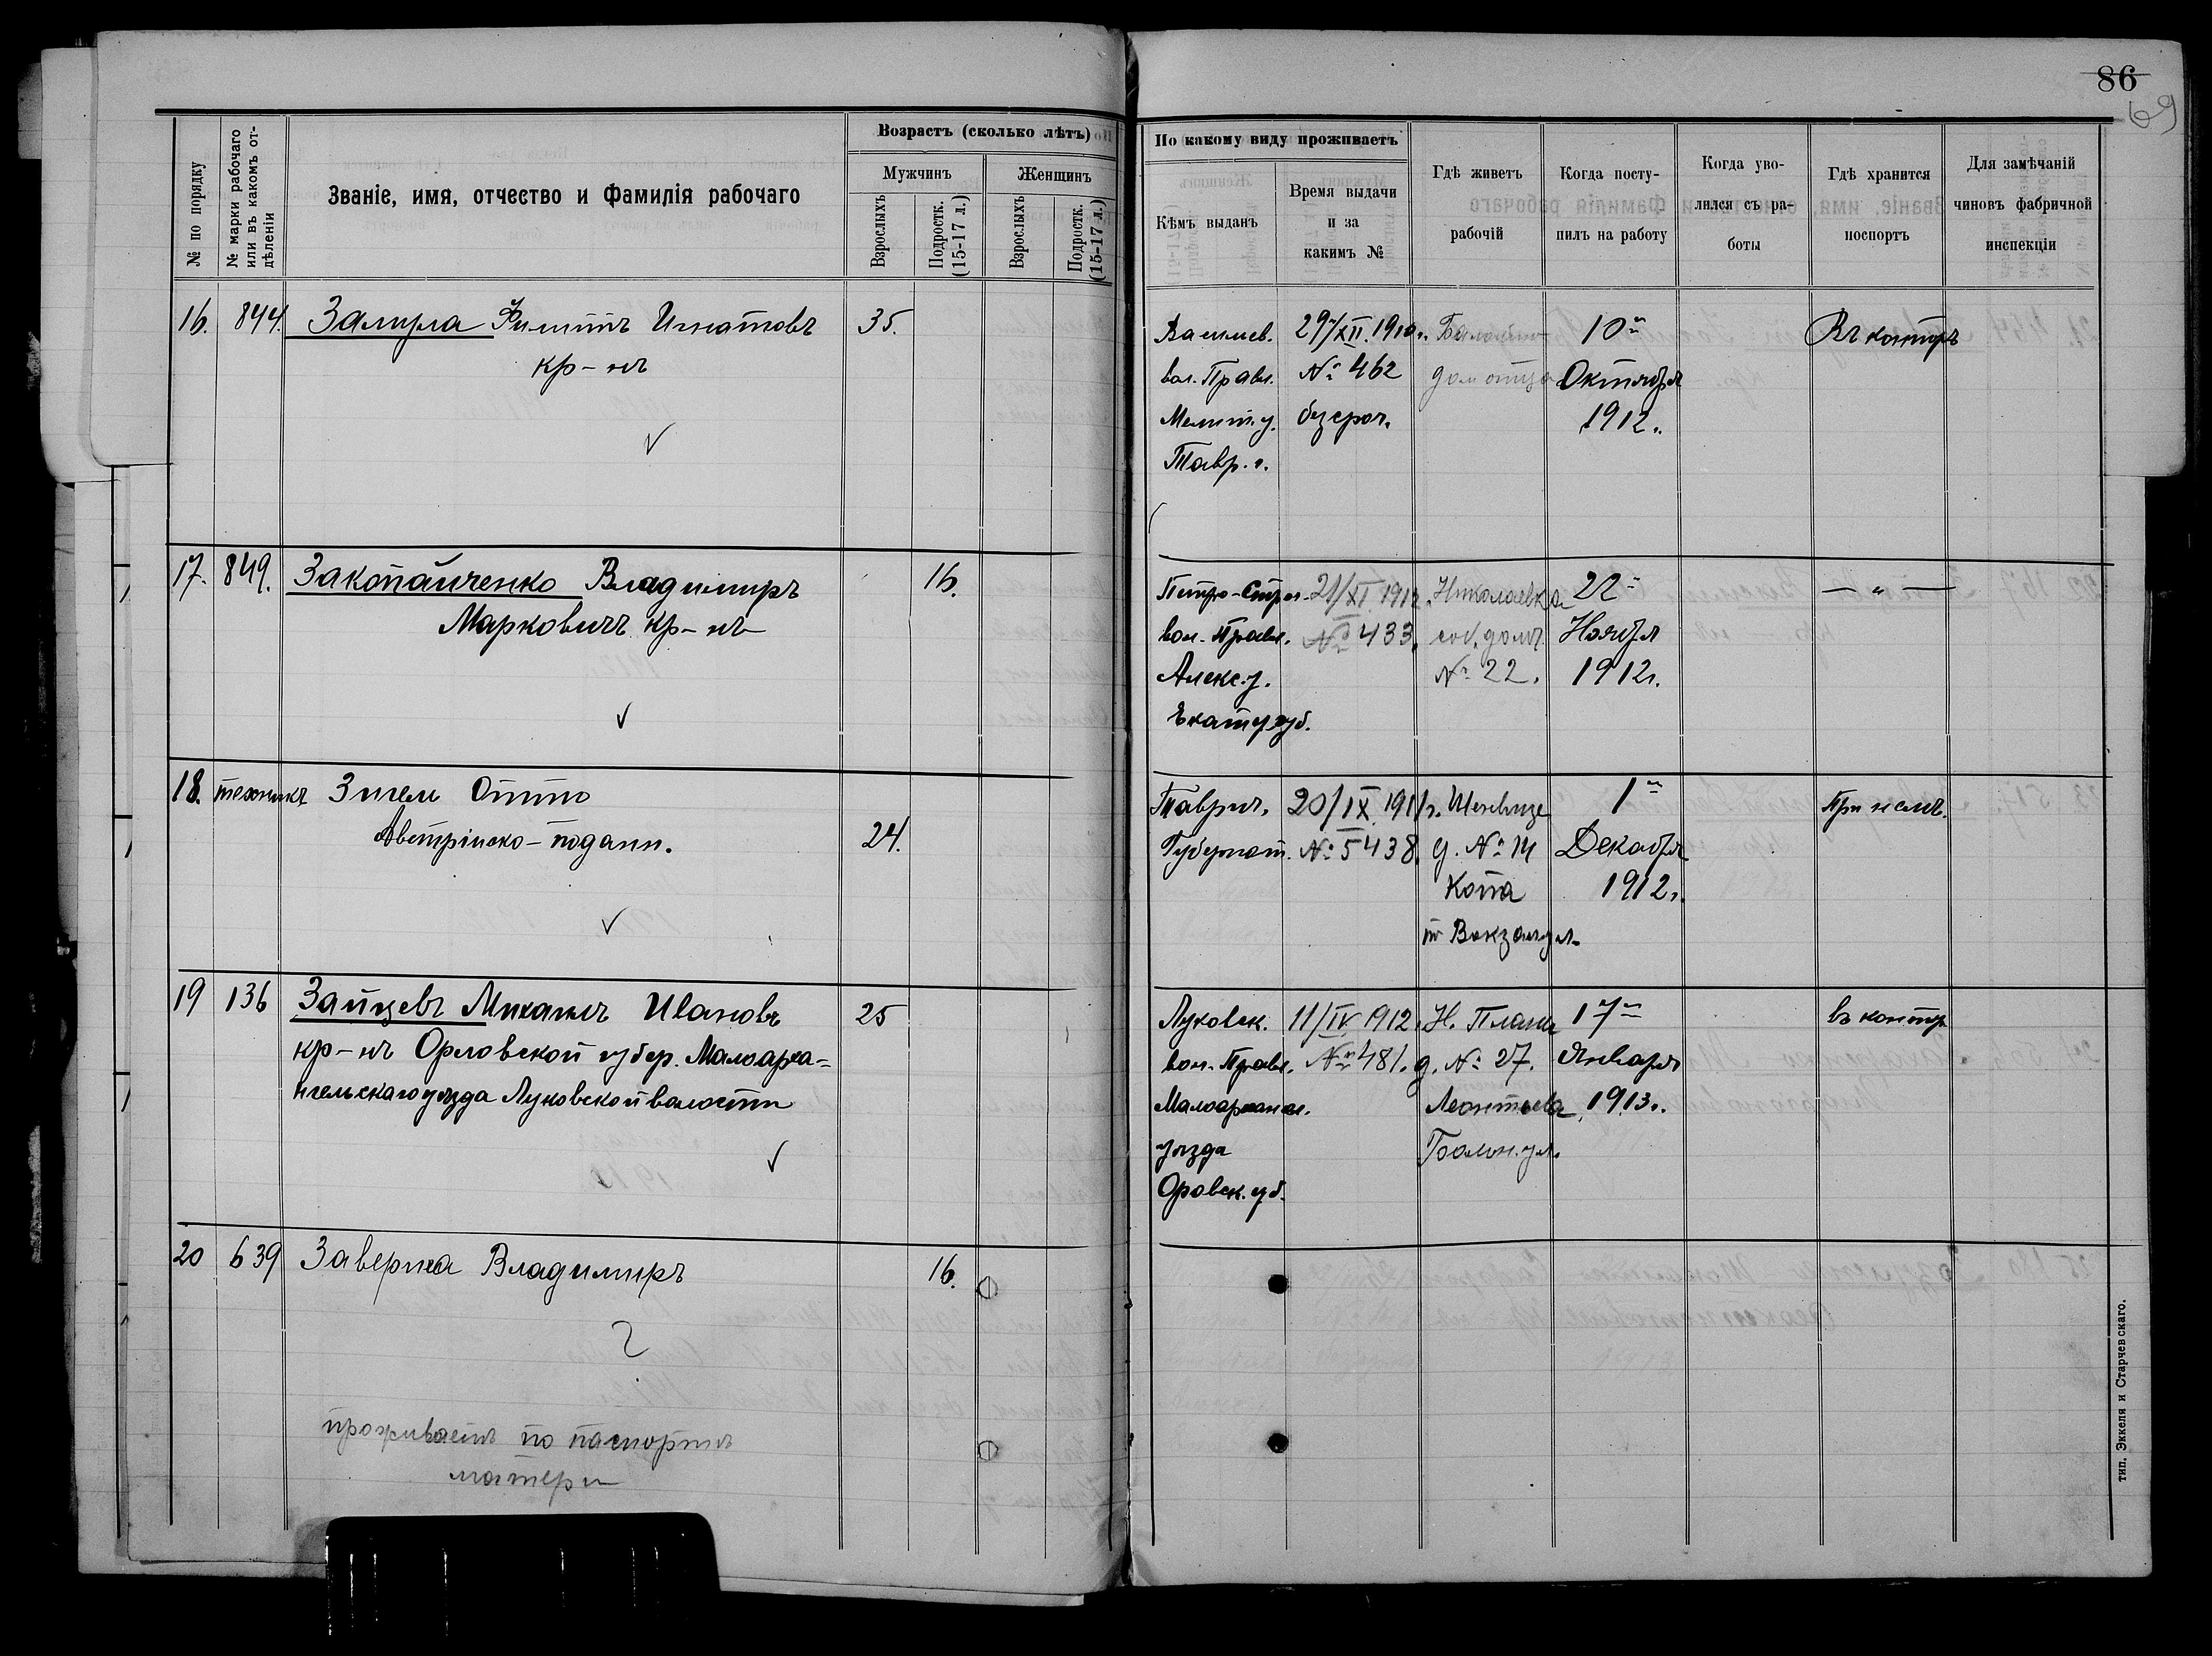 86
69
№ по порядку
№ марки рабочаго или въ какомъ отдѣленіи
Званіе, имя, отчество и Фамилія рабочаго
Возрастъ (сколько лѣтъ)
Мужчинъ
Женщинъ
Взрослыхъ
Подростк. (15-17 л.)
Взрослыхъ
Подростк. (15-17 л.)
По какому виду проживаетъ
Кѣмъ выданъ
Время выдачи
и за
какимъ №
Гдѣ живетъ
рабочій
Когда посту-
пилъ на работу
Когда уво-
лился съ ра-
боты
Гдѣ хранится
поспортъ
Для замѣчаній
чиновъ фабричной
инспекціи
16. 844. Филиппъ Игнатовъ 35.
кр-нъ
Василев.
вол. Правл.
Мелит. у.
Тавр. г.
29/XII. 1910 г.
№ 462
безсроч.
дом отца
10го
Октября
1912 г.
Въ конторѣ
17. 849. Закопайченко Владимиръ 16.
Марковичъ кр-нъ
вол. Правл.
Алекс. у.
Екатер. губ.
21/XI. 1912.
№ 433.
Николаевка
соб. домъ
№ 22.
22
Ноября
1912 г.
— „ —
18. техникъ Зигель Отто
Австрійско-поддан. 24.
Таврич.
Губернат.
20/IX. 1911 г.
№ 5438.
д. № 14
Копа
по Вокзал. ул.
1го
Декабря
1912 г.
При немъ.
19 136 Зайцевъ Михаилъ Ивановъ 25
кр-нъ Орловской губер. Малоарха-
нгельскаго уѣзда Луковской волости
Луковск.
вол. Правл.
Малоархангел.
уѣзда
Оровск. губ.
11/IV 1912.
№ 481.
Н. Планъ
д. № 27.
Леонтьева
17го
Января
1913 г.
въ контор
20 639 Заверуха Владимиръ 16.
?
проживаетъ по паспорту
матери
тип. Эккеля и Старчевскаго.